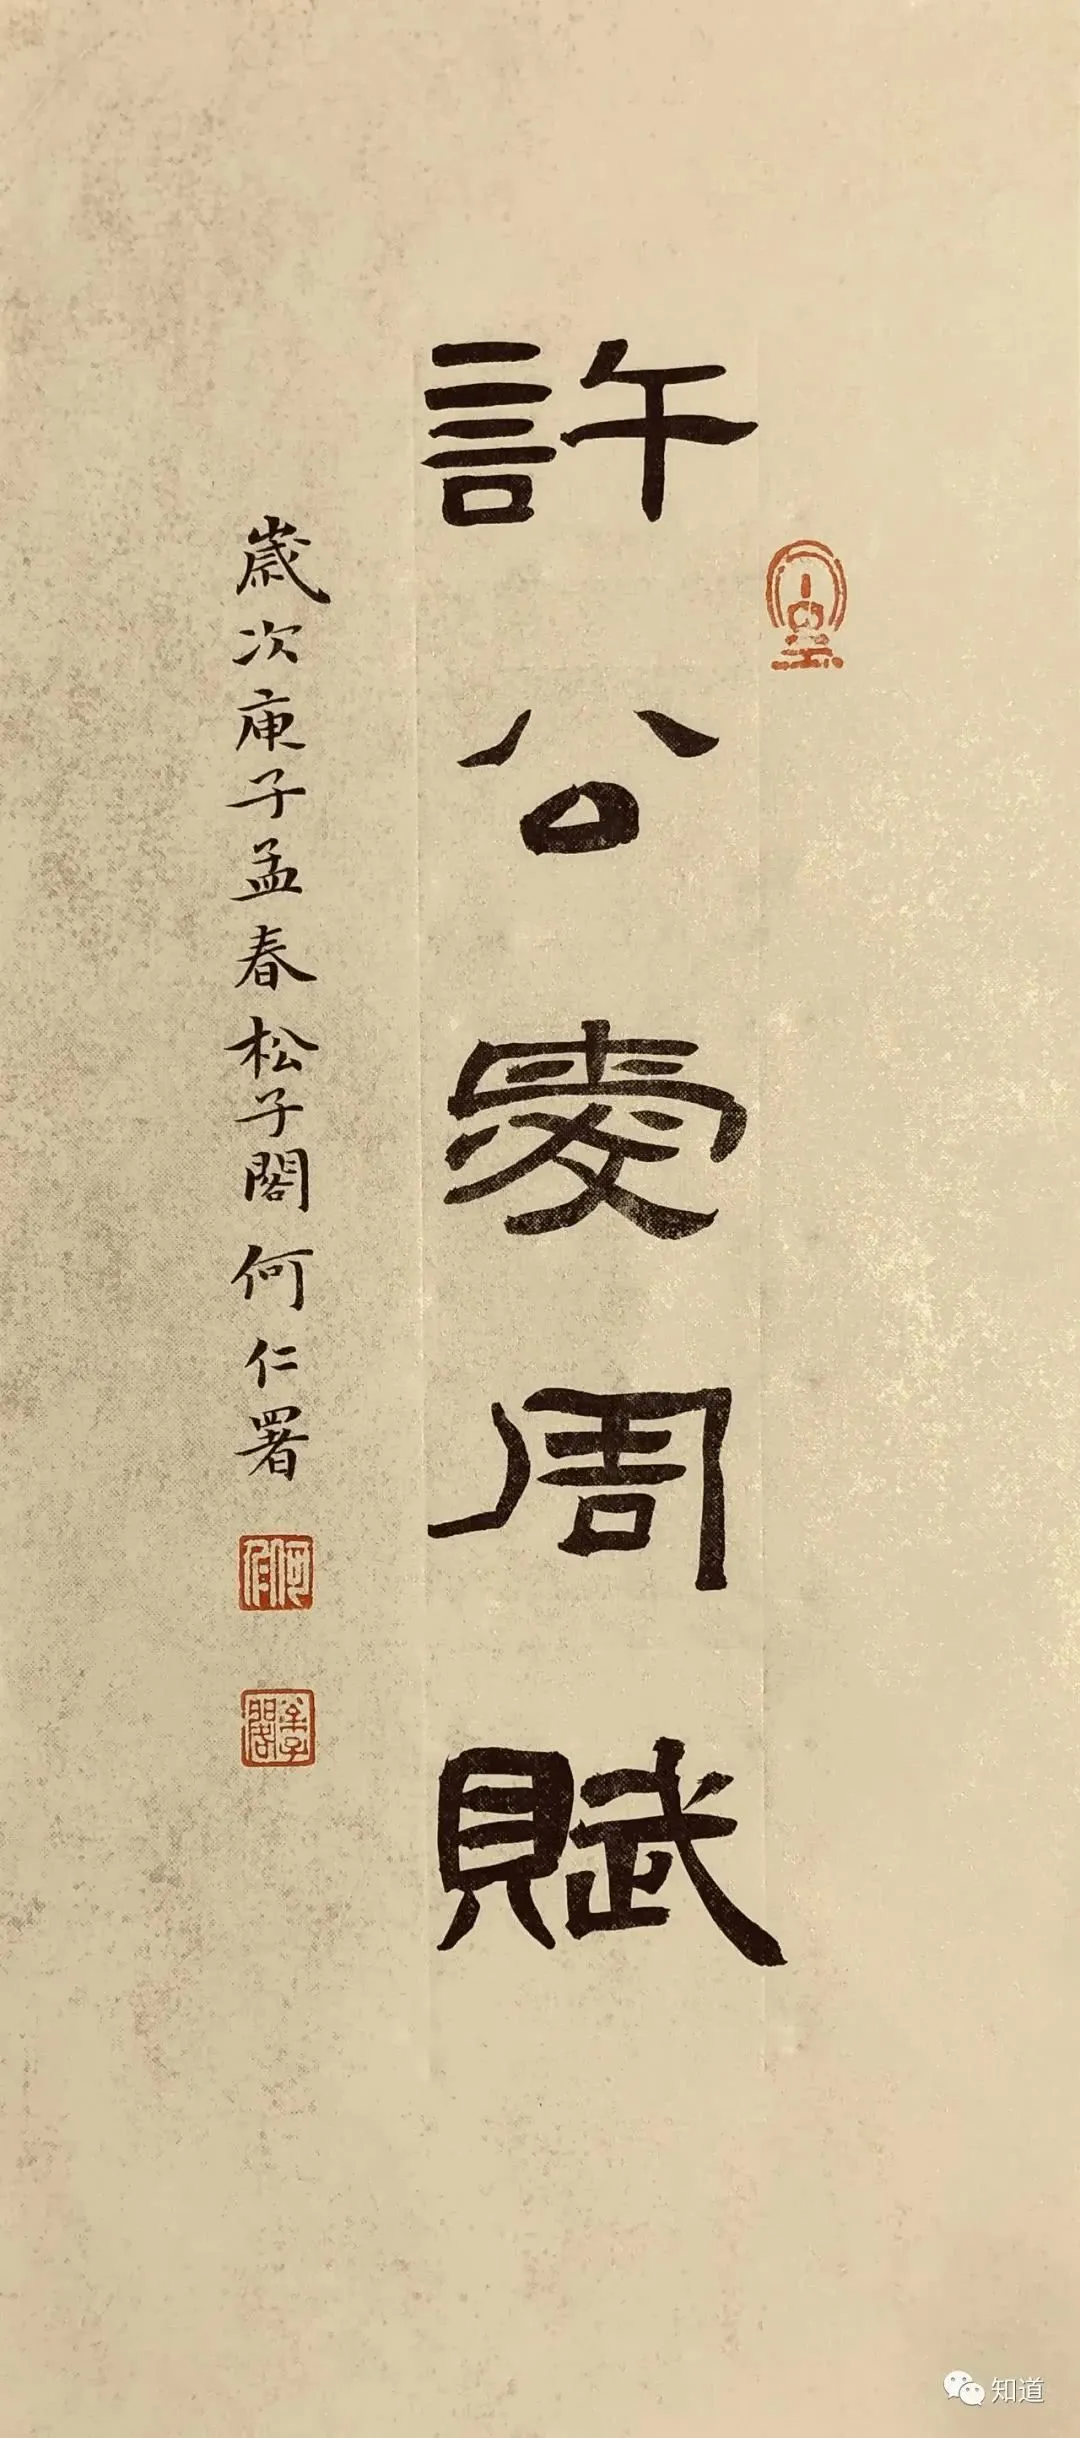 許公愛周賦
歲次庚子孟春松子閣何仁署
知道